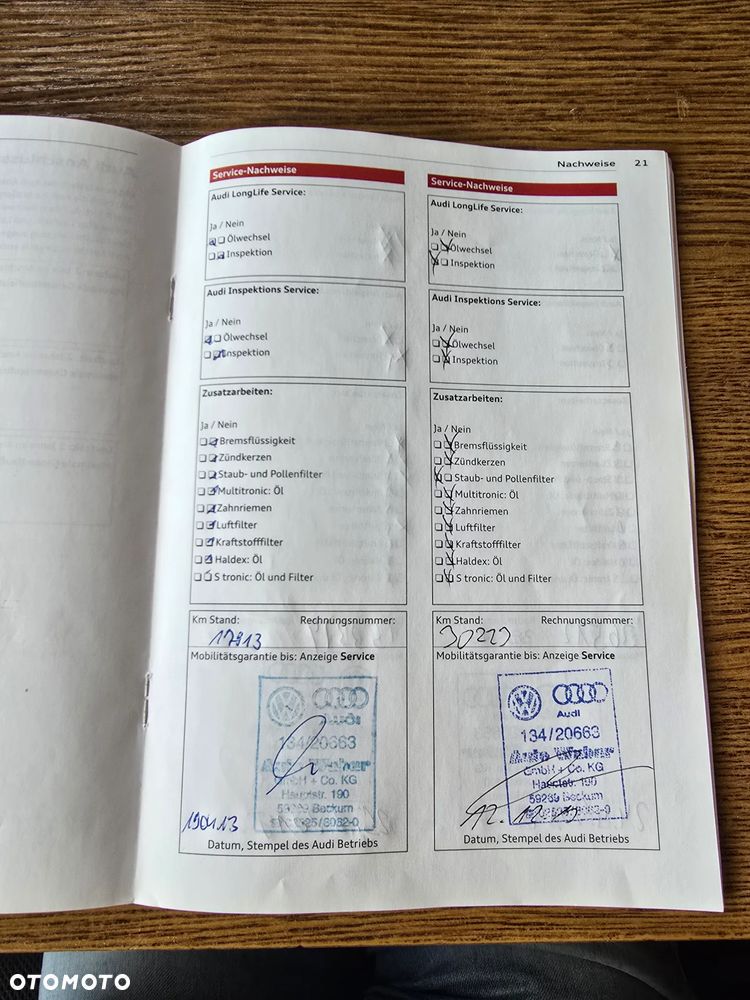 Nachweise 21
Service-Nachweise
Audi LongLife Service:
Ja / Nein
Ölwechsel
Inspektion
Audi Inspektions Service:
Ja / Nein
Ölwechsel
Inspektion
Zusatzarbeiten:
Ja / Nein
Bremsflüssigkeit
Zündkerzen
Staub- und Pollenfilter
Multitronic: Öl
Zahnriemen
Luftfilter
Kraftstofffilter
Haldex: Öl
S tronic: Öl und Filter
Km Stand: Rechnungsnummer:
17913
Mobilitätsgarantie bis: Anzeige Service
Audi
134/20663
GmbH + Co. KG
Hauptstr. 190
59269 Beckum
190413
Datum, Stempel des Audi Betriebs
Service-Nachweise
Audi LongLife Service:
Ja / Nein
Ölwechsel
Inspektion
Audi Inspektions Service:
Ja / Nein
Ölwechsel
Inspektion
Zusatzarbeiten:
Ja / Nein
Bremsflüssigkeit
Zündkerzen
Staub- und Pollenfilter
Multitronic: Öl
Zahnriemen
Luftfilter
Kraftstofffilter
Haldex: Öl
S tronic: Öl und Filter
Km Stand: Rechnungsnummer:
30223
Mobilitätsgarantie bis: Anzeige Service
Audi
134/20663
Auto Weber
GmbH + Co. KG
Hauptstr. 190
59269 Beckum
Datum, Stempel des Audi Betriebs
OTOMOTO